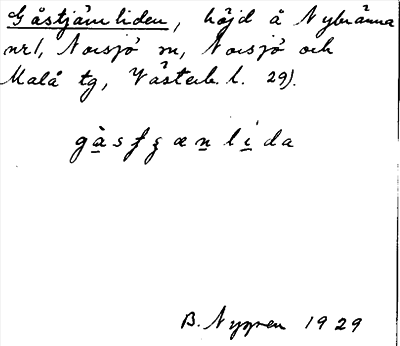 Gåstjärnliden, höjd å Nybränna
nr 1, Norsjö sn, Norsjö och
Malå tg, Västerb. l. 29).
B. Nygren 1929